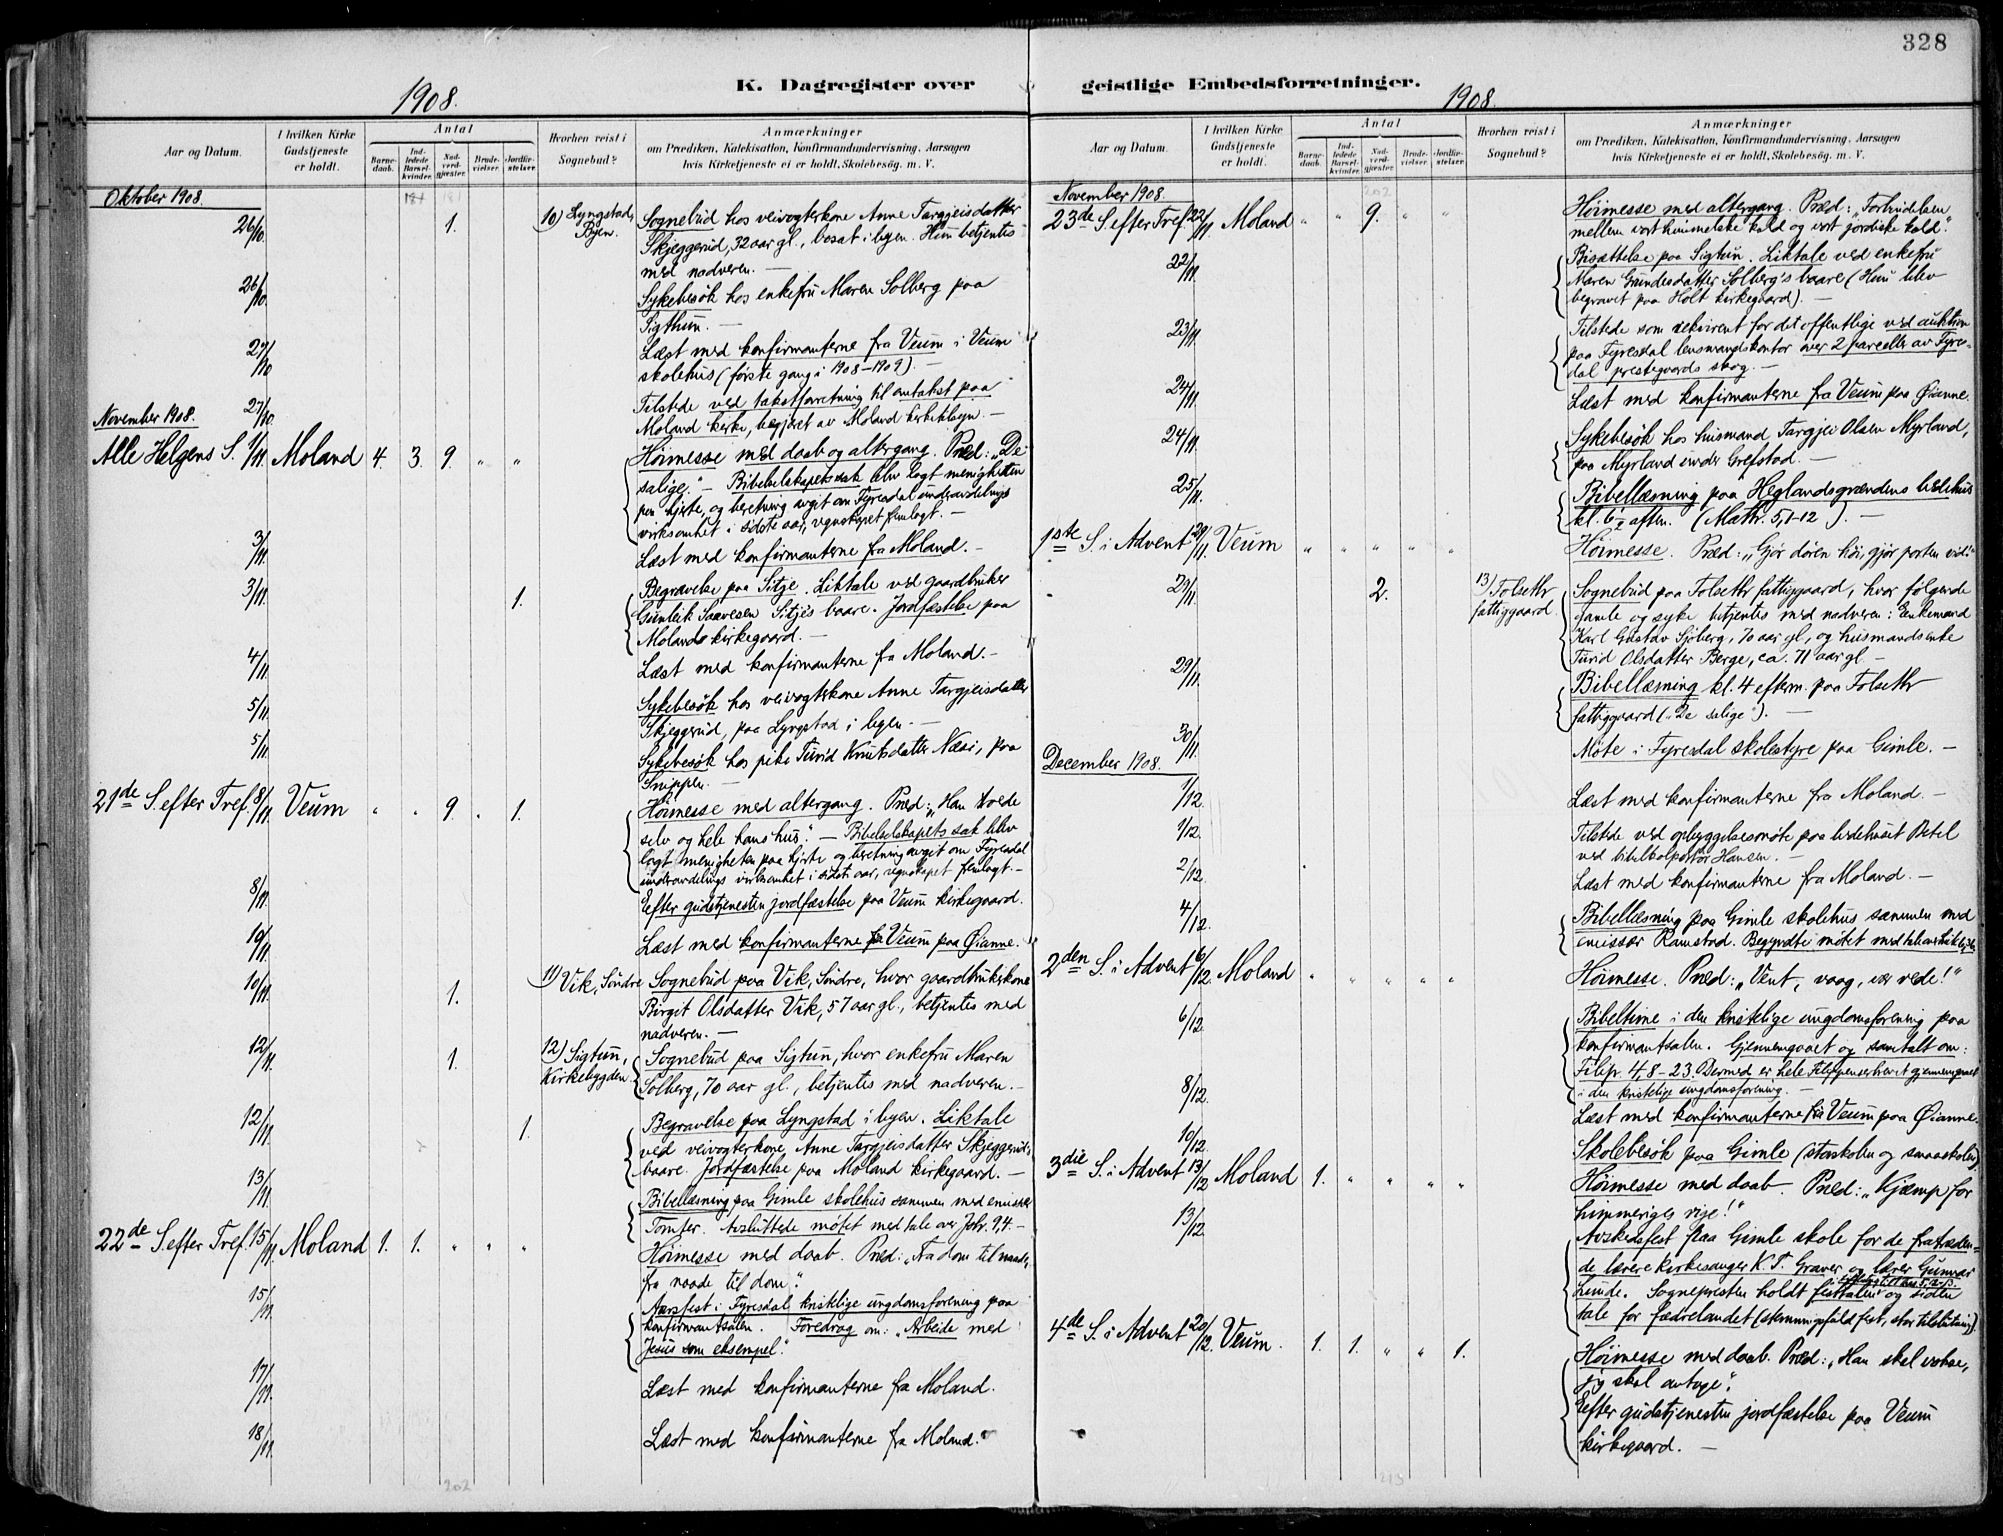 328
K. Dagregister over geistlige Embedsforretninger.
1908.
1908.
Aar og Datum.
I hvilken Kirke Gudstjeneste er holdt.
Antal
Barnedaab.
Indledede Barselkvinder.
Nadverdgjæster.
Brudevielser.
Jordfæstelser.
Hvorhen reist i Sognebud?
Anmærkninger
om Prædiken, Katekisation, Konfirmandundervisning, Aarsagen
hvis Kirketjeneste ei er holdt, Skolebesøg, m. V.
Oktober 1908.
181
26/10. 1. 10) Lyngstad, Byen.
Sognebud hos veivogterkone Anne Targjeisdatter
Skjeggerud, 32 aar gl., bosat i byen. Hun betjentes
med nadveren. —
26/10.
Sykebesøk hos enkefru Maren Solberg paa
Sigthun. —
27/10
Læst med konfirmanterne fra Veum i Veum
skolehus (første gang i 1908–1909). —
27/10.
Tilstede ved takstforretning til avtakst paa
Moland kirke, begjæret av Moland kirketilsyn. —
November 1908.
Alle Helgens S. 1/11. Moland 4. 3. 9. " "
Høimesse med daab og altergang. Præd: „De
salige." — Bibelselskapets sak blev lagt menigheten
paa hjerte, og beretning avgit om Fyresdal underavdelings
virksomhet i sidste aar, regnskapet fremlagt. —
3/11.
Læst med konfirmanterne fra Moland. —
3/11. 1.
Begravelse paa Sitje. Liktale ved gaardbruker
Gunleik Saavesen Sitjes baare. Jordfæstelse paa
Molands kirkegaard. —
4/11.
Læst med konfirmanterne fra Moland. —
5/11.
Sykebesøk hos veivogterkone Anne Targjeisdatter
Skjeggerud, paa Lyngstad i byen. —
5/11.
Sykebesøk hos pike Turid Knutsdatter Næsi, paa
Snippen. —
21de S. efter Tref. 8/11. Veum " " 9 " 1.
Høimesse med altergang. Præd: „Han troede
selv og hele hans hus." — Bibelselskapets sak blev
lagt menigheten paa hjerte og beretning avgit om Fyresdal
underavdelings virksomhet i sidste aar, regnskapet fremlagt. —
8/11.
Efter gudstjenesten jordfæstelse paa Veum kirkegaard.
10/11.
Læst med konfirmanterne fra Veum paa Øianne.
10/11. 1. 11) Vik, Søndre
Sognebud paa Vik, Søndre, hvor gaardbrukerkone
Birgit Olsdatter Vik, 57 aar gl., betjentes med
nadveren. —
12/11. 1. 12) Sigtun, Kirkebygden.
Sognebud paa Sigtun, hvor enkefru Maren
Solberg, 70 aar gl., betjentes med nadveren. —
12/11. 1.
Begravelse paa Lyngstad i byen. Liktale
ved veivogterkone Anne Targjeisdatter Skjeggeruds
baare. Jordfæstelse paa Moland kirkegaard. —
13/11.
Bibellæsning paa Gimle skolehus sammen med emissær
Tomter. Avsluttede møtet med tale over Joh. 9,4. —
22de S. efter Tref. 15/11. Moland 1. 1. " " "
Høimesse med daab. Præd: „Fra dom til naade,
fra naade til dom".
15/11.
Aarsfest i Fyresdal kristelige ungdomsforening paa
konfirmantsalen. Foredrag om: „Arbeide med
Jesus som eksempel".
17/11.
Læst med konfirmanterne fra Moland.
18/11.
Læst med konfirmanterne fra Moland.
202
Aar og Datum.
I hvilken Kirke Gudstjeneste er holdt.
Antal
Barnedaab.
Indledede Barselkvinder.
Nadverdgjæster.
Brudevielser.
Jordfæstelser.
Hvorhen reist i Sognebud?
Anmærkninger
om Prædiken, Katekisation, Konfirmandundervisning, Aarsagen
hvis Kirketjeneste ei er holdt, Skolebesøg, m. V.
November 1908.
202
23de S. efter Tref. 22/11. Moland " " 9. " "
Høimesse med altergang. Præd: „Forbindelsen
mellem vort himmelske kald og vort jordiske kald".
22/11.
Bisættelse paa Sigtun. Liktale ved enkefru
Maren Gundesdatter Solberg's baare (Hun blev
begravet paa Holt kirkegaard). —
23/11.
Tilstede som rekvirent for det offentlige ved auktion
paa Fyresdal lensmandskontor over 2 parceller av Fyres-
dal prestegaards skog. —
24/11.
Læst med konfirmanterne fra Veum paa Øianne.
24/11.
Sykebesøk hos husmand Targjei Olsen Myrland,
paa Myrland under Grefstad. —
25/11.
Bibellæsning paa Heglandsgrændens bedehus
kl. 6 aften. (Matth. 5,1–12). —
1ste S. i Advent 29/11. Veum " " " " "
Høimesse. Præd: „Gjør døren høi, gjør porten vid!"
29/11. 2. 13) Folsethr fattiggaard.
Sognebud paa Folsethr fattiggaard, hvor følgende
gamle og syke betjentes med nadveren: Enkemand
Karl Gustav Sjøberg, 70 aar gl, og husmandsenke
Turid Olsdatter Berge, ca. 71 aar gl. —
29/11.
Bibellæsning kl. 4 efterm. paa Folsethr
fattiggaard („De salige"). —
30/11.
Møte i Fyresdal skolestyre paa Gimle. —
December 1908.
1/12.
Læst med konfirmanterne fra Moland. —
1/12.
Tilstede ved opbyggelsesmøte paa bedehuset Betel
ved bibelkolportør Hansen. —
2/12.
Læst med konfirmanterne fra Moland. —
4/12.
Bibellæsning paa Gimle skolehus sammen med
emissær Ramstad. Begyndte møtet med tale over
2den S. i Advent 6/12. Moland " " " " "
Høimesse. Præd: „Vent, vaag, vær rede!"
6/12.
Bibeltime i den kristelige ungdomsforening paa
konfirmantsalen. Gjennemgaaet og samtalt om:
Filip. 4,8–23. Dermed er hele Filippenserbrevet gjennemgaaet
i den kristelige ungdomsforening. —
8/12.
Læst med konfirmanterne fra Veum paa Øianne.
10/12.
Skolebesøk paa Gimle (storskolen og smaaskolen).
3die S. i Advent 13/12 Moland 1. " " " "
Høimesse med daab. Præd: „Kjæmp for
himmeriges rige!"
13/12.
Avskedsfest paa Gimle skole for de fratræden-
de lærere kirkesanger K. T. Graver og lærer Gunvar
Lunde. Sognepresten holdt festtalen og siden
tale for fædrelandet (stemningsfuld fest, stor tilslutning).
4de S. i Advent 20/12. Veum. 1. 1. " " 1.
Høimesse med daab. Præd: „Han skal vokse,
jeg skal avtage".
Efter gudstjenesten jordfæstelse paa Veum
kirkegaard. —
213